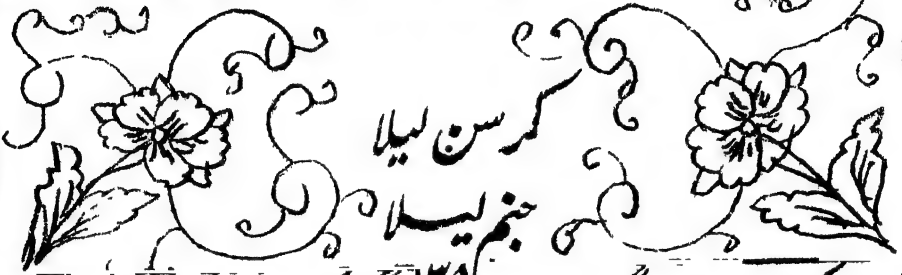 کرسن لیلا
جنم لیلا